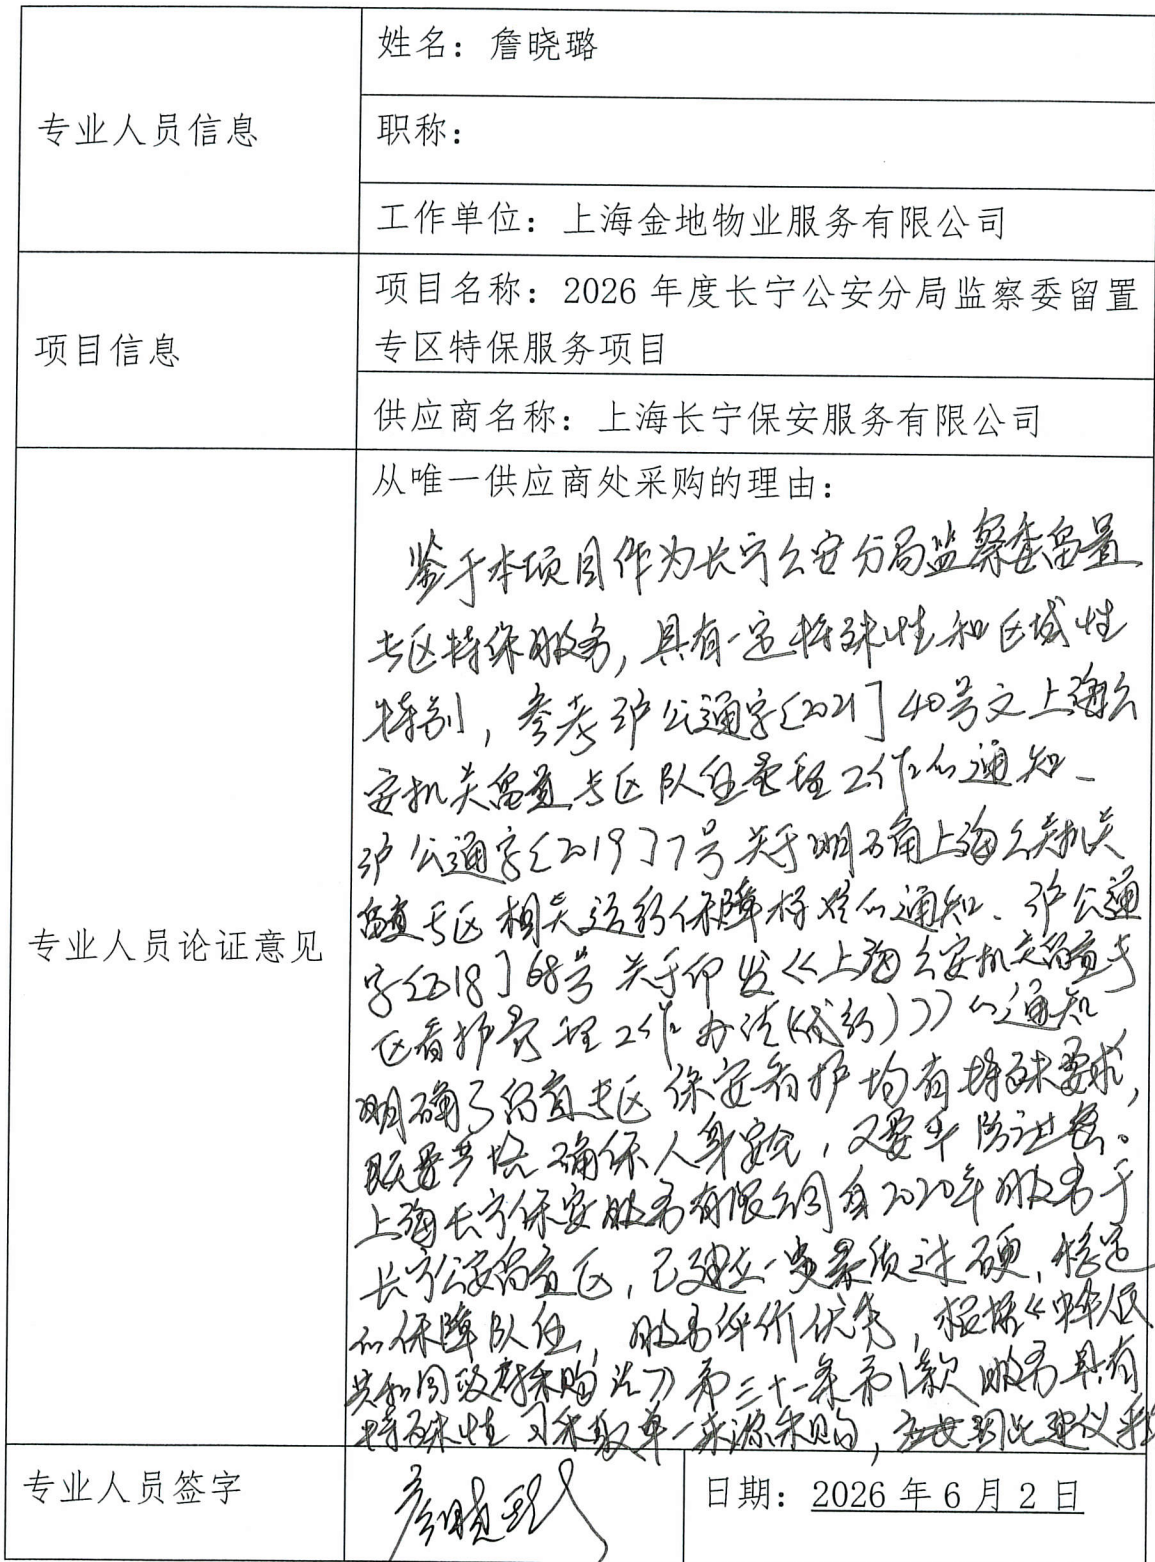 专业人员信息
姓名：詹晓璐
职称：
工作单位：上海金地物业服务有限公司
项目信息
项目名称：2026 年度长宁公安分局监察委留置
专区特保服务项目
供应商名称：上海长宁保安服务有限公司
专业人员论证意见
从唯一供应商处采购的理由：
鉴于本项目作为长宁公安分局监察委留置
专区特保服务，具有一定特殊性和区域性
特别，参考沪公通字[2021]40号文上海公
安机关留置专区队伍管理工作的通知、
沪公通字[2019]7号关于明确上海公安机关
留置专区相关运行保障标准的通知、沪公通
字[2018]68号关于印发《上海公安机关留置专
区看护管理工作办法(试行)》的通知
明确了留置专区保安看护均有特殊要求，
既要严格确保人身安全，又要牢防泄密。
上海长宁保安服务有限公司自2020年服务于
长宁公安留置区，已建立一支素质过硬、稳定
的保障队伍，服务评价优秀，根据《中华人民
共和国政府采购法》第三十一条第1款服务具有
特殊性可采取单一来源采购，因此建议
专业人员签字
詹晓璐
日期：2026 年 6 月 2 日